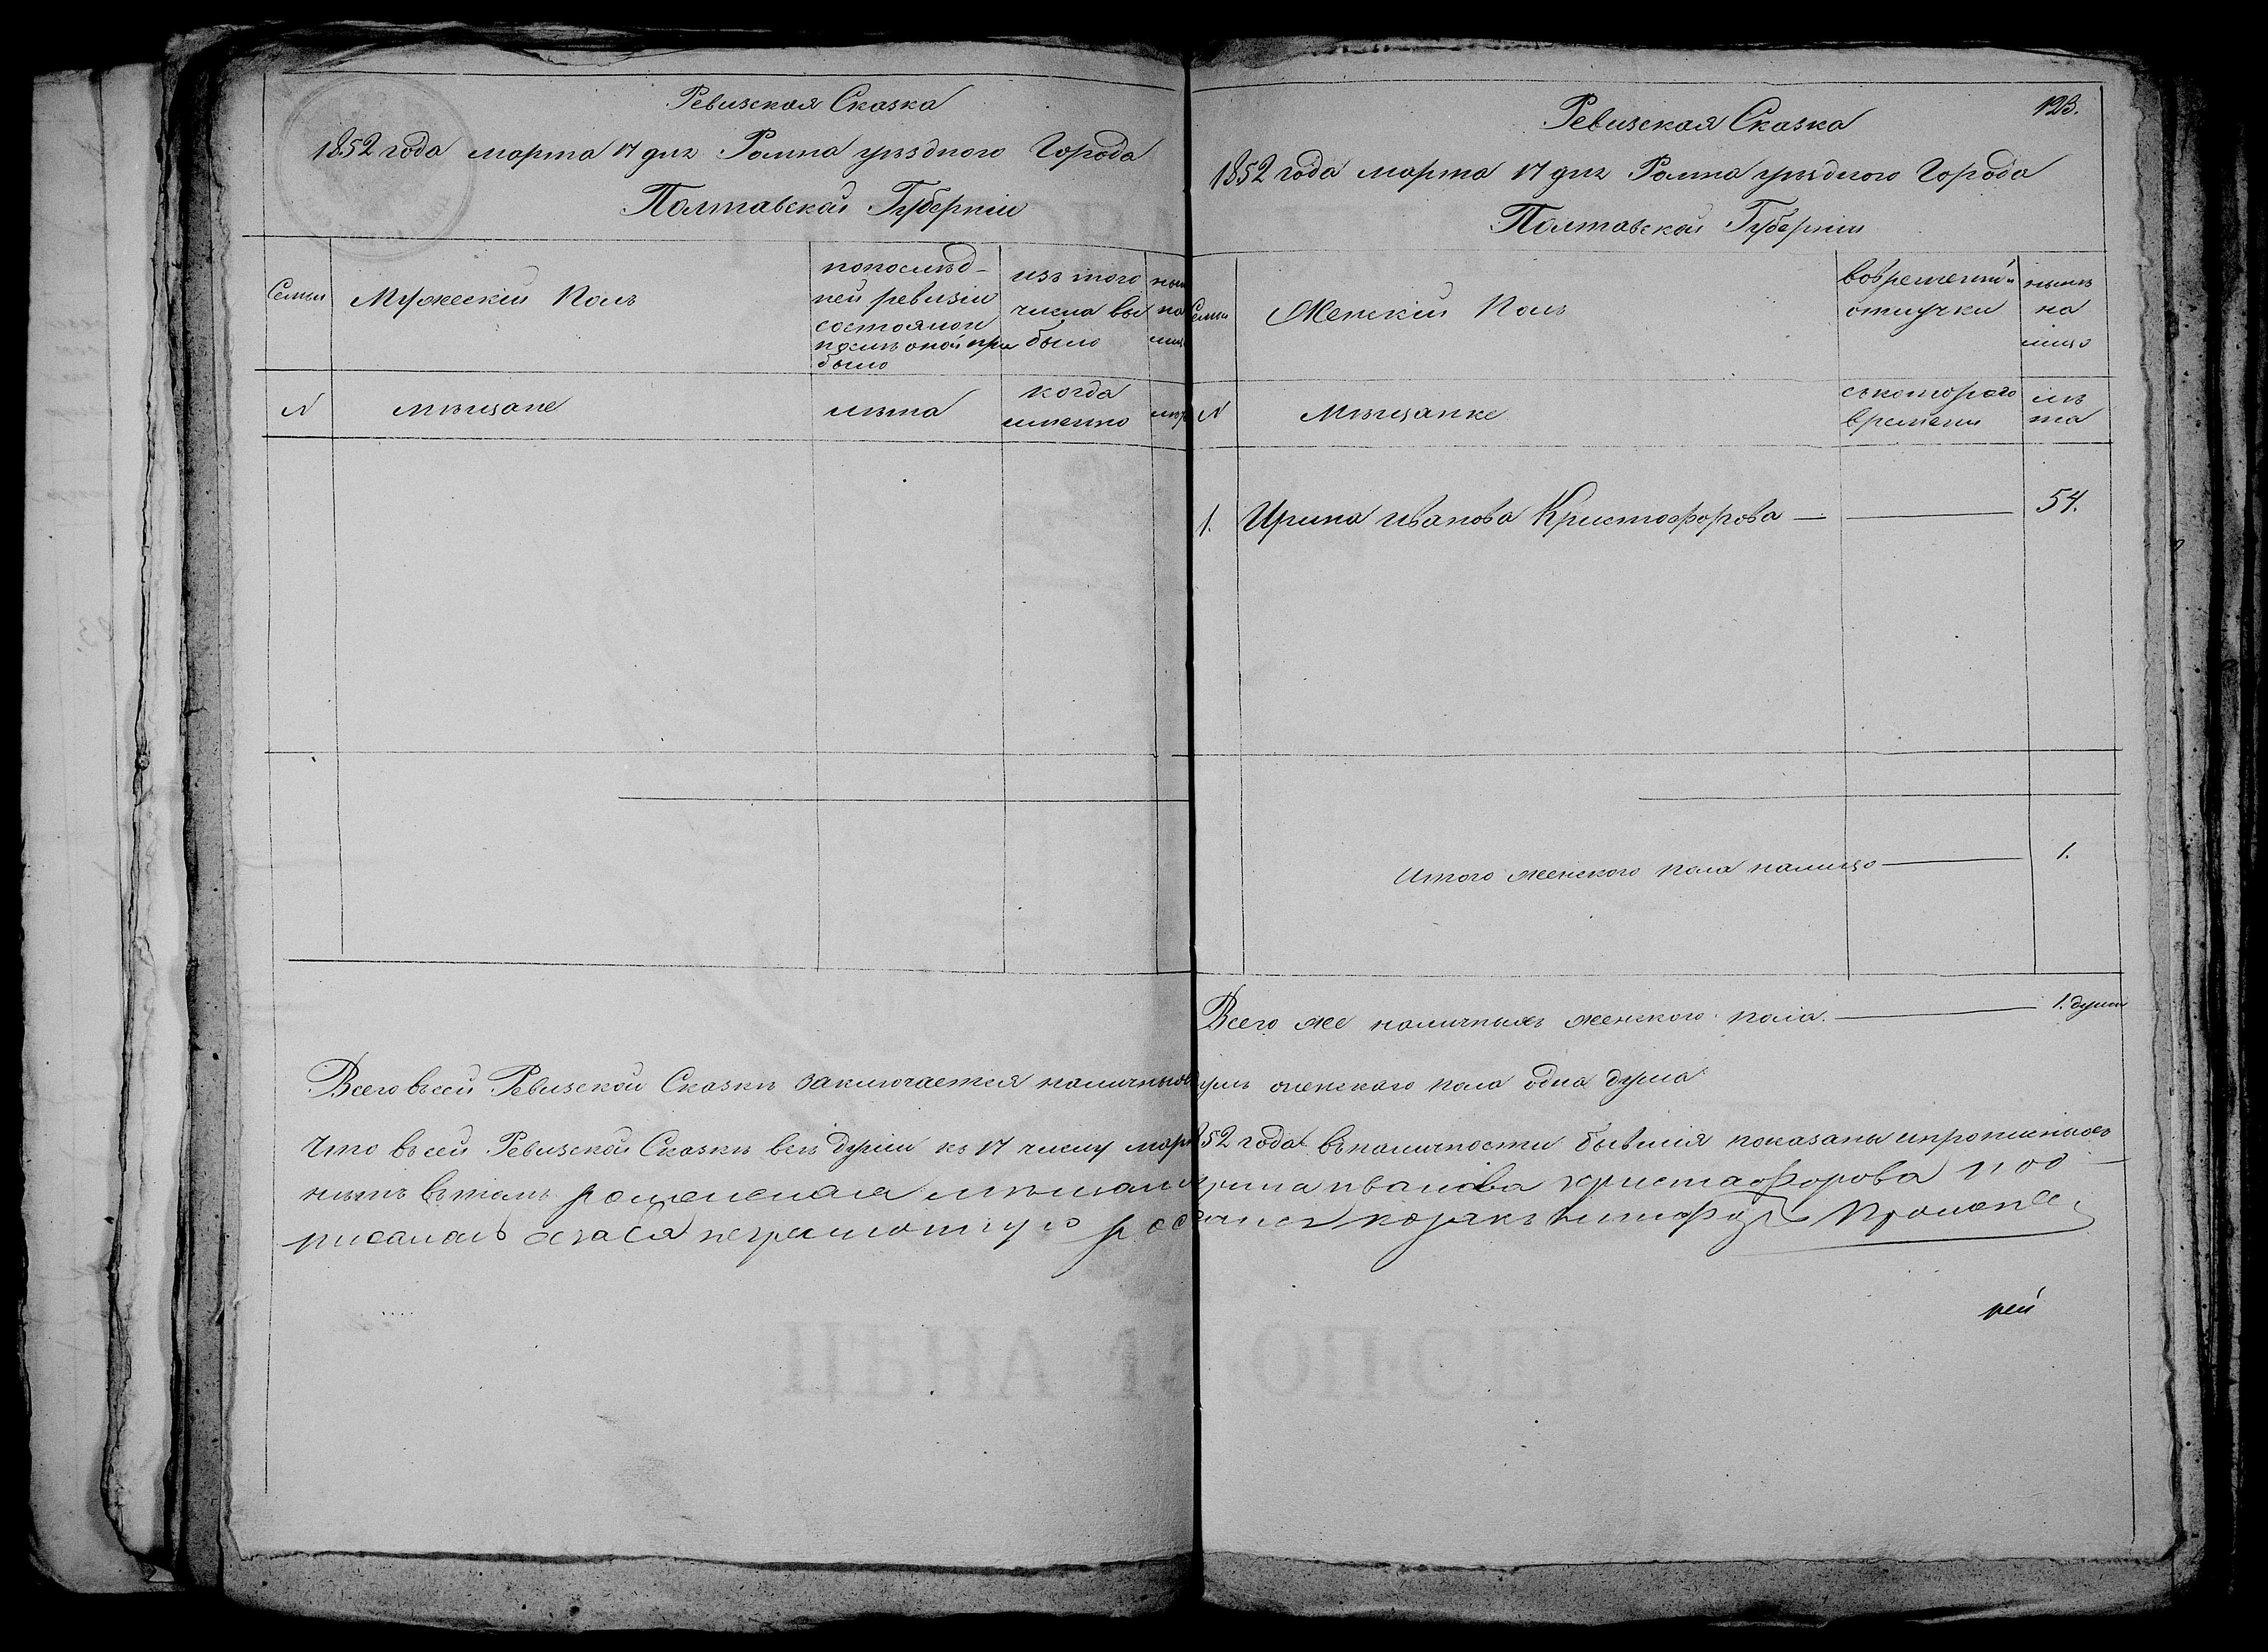 Ревизская Сказка
1852 года марта 17 дня Ромна уѣзднаго Города
Полтавской Губерніи
Семьи
Мужескій Полъ
попослѣд-
ней ревизіи
состояло и
послѣ оной при
было
изъ того
числа вы
было
нын
на
лиц
N
мѣщане
лѣта
когда
именно
лѣт
123.
Ревизская Сказка
1852 года марта 17 дня Ромна уѣзднаго Города
Полтавской Губерніи
Семьи
Женскій Полъ
вовременной
отлучки
нынѣ
на
лицо
N
Мѣщанке
скотораго
времени
лѣ
та
1. Ирина иванова Христофорова — — 54.
Итого женского пола налицо — 1.
Всего же наличныхъ женского пола. — 1. душа
Всего въ сей Ревизской Сказкѣ заключается наличных душъ женскаго пола одна душа
Что въ сей Ревизской Сказкѣ всѣ души къ 17 числу мар 52 года въналичности бывшія показаны ипрописныхъ
нѣтъ вътомъ роменская мѣщан ирина иванова христофорова под
писалась азасія неграмотную козакъ
рей